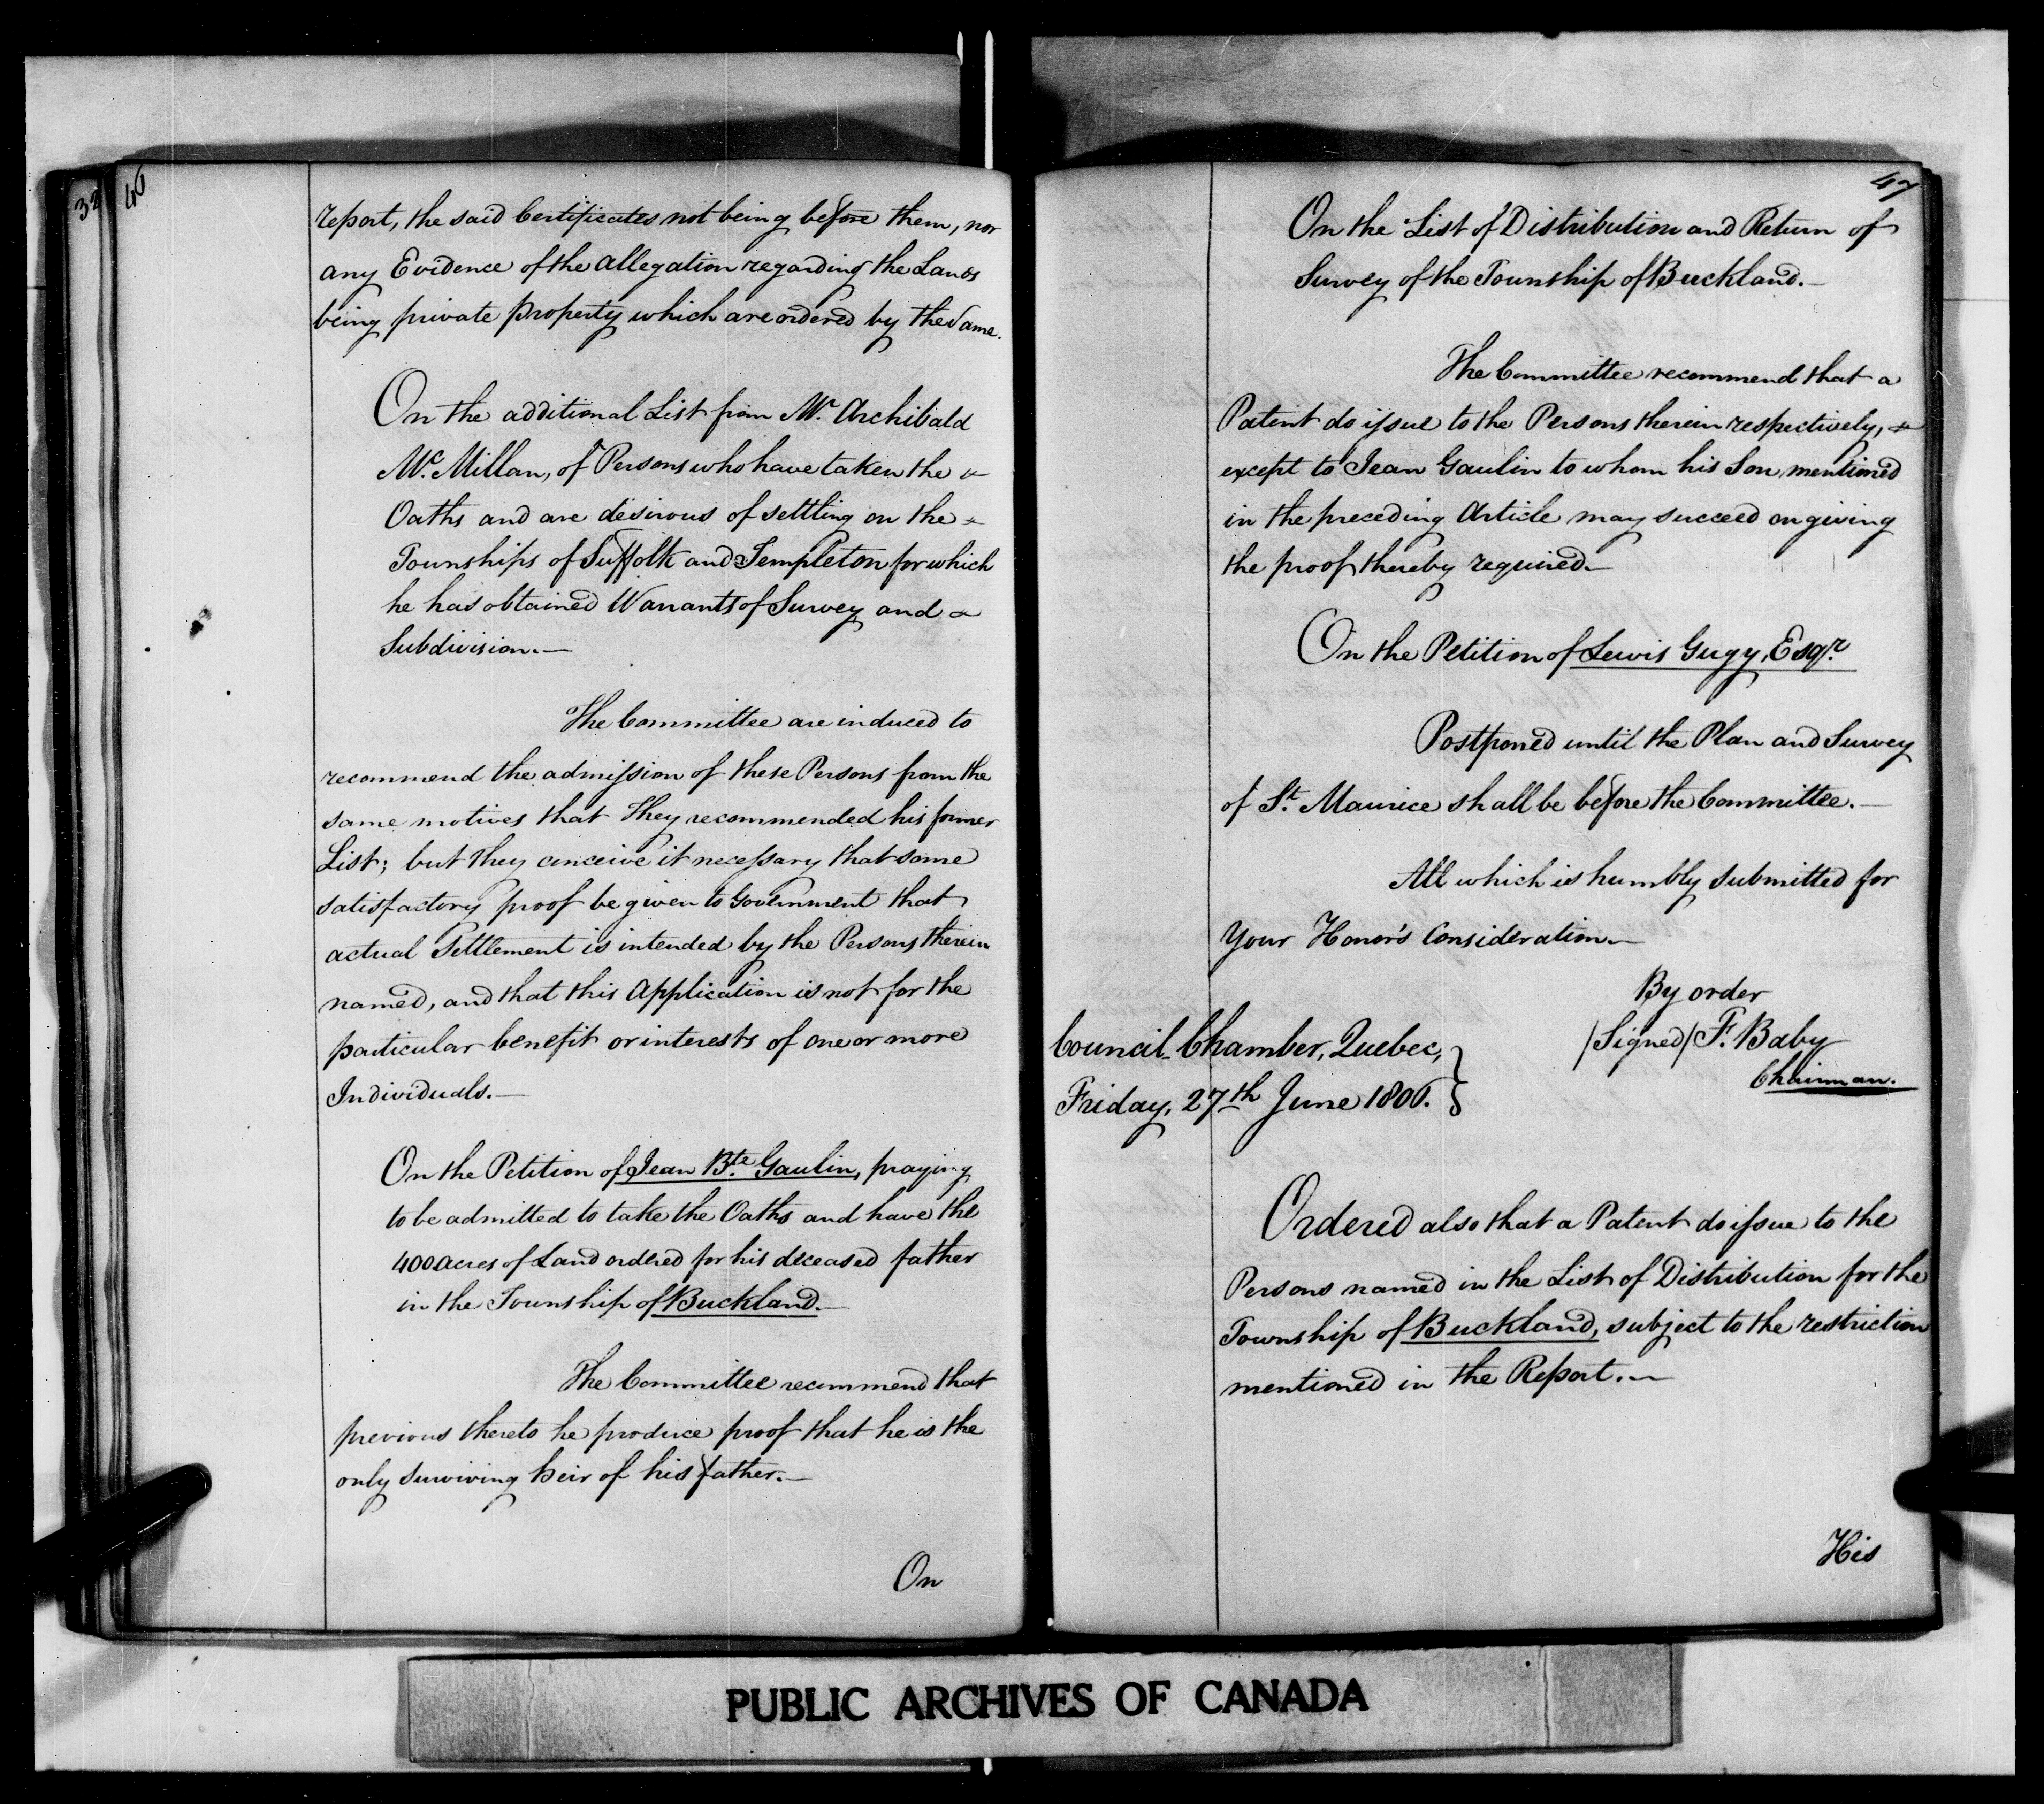 32
46
report, the said Certificates not being before them, nor
any Evidence of the allegation regarding the Lands
being private property which are ordered by the Same.
On the additional List from Mr. Archibald
Mc. Millan, of Persons who have taken the
Oaths and are desirous of settling on the
Townships of Suffolk and Templeton for which
he has obtained Warrants of Survey and
Subdivision.—
The Committee are induced to
recommend the admission of these Persons from the
same motives that they recommended his former
List; but they conceive it necessary that some
satisfactory proof be given to Government that
actual Settlement is intended by the Persons therein
named, and that this Application is not for the
particular benefit or interests of one or more
Individuals.—
On the Petition of Jean Bte. Gaulin, praying
to be admitted to take the Oaths and have the
400 acres of Land ordered for his deceased father
in the Township of Buckland.—
The Committee recommend that
previous thereto he produce proof that he is the
only surviving heir of his father.—
On
47
On the List of Distribution and Return of
Survey of the Township of Buckland.—
The Committee recommend that a
Patent do issue to the Persons therein respectively,
except to Jean Gaulin to whom his Son mentioned
in the preceding Article may succeed on giving
the proof thereby required.—
On the Petition of Lewis Gugy, Esqr.
Postponed until the Plan and Survey
of St. Maurice shall be before the Committee.—
All which is humbly submitted for
Your Honor's Consideration.—
By order
/Signed/ F. Baby
Chairman.
Council Chamber, Quebec,
Friday, 27th June 1806.
Ordered also that a Patent do issue to the
Persons named in the List of Distribution for the
Township of Buckland, subject to the restriction
mentioned in the Report.—
His
PUBLIC ARCHIVES OF CANADA